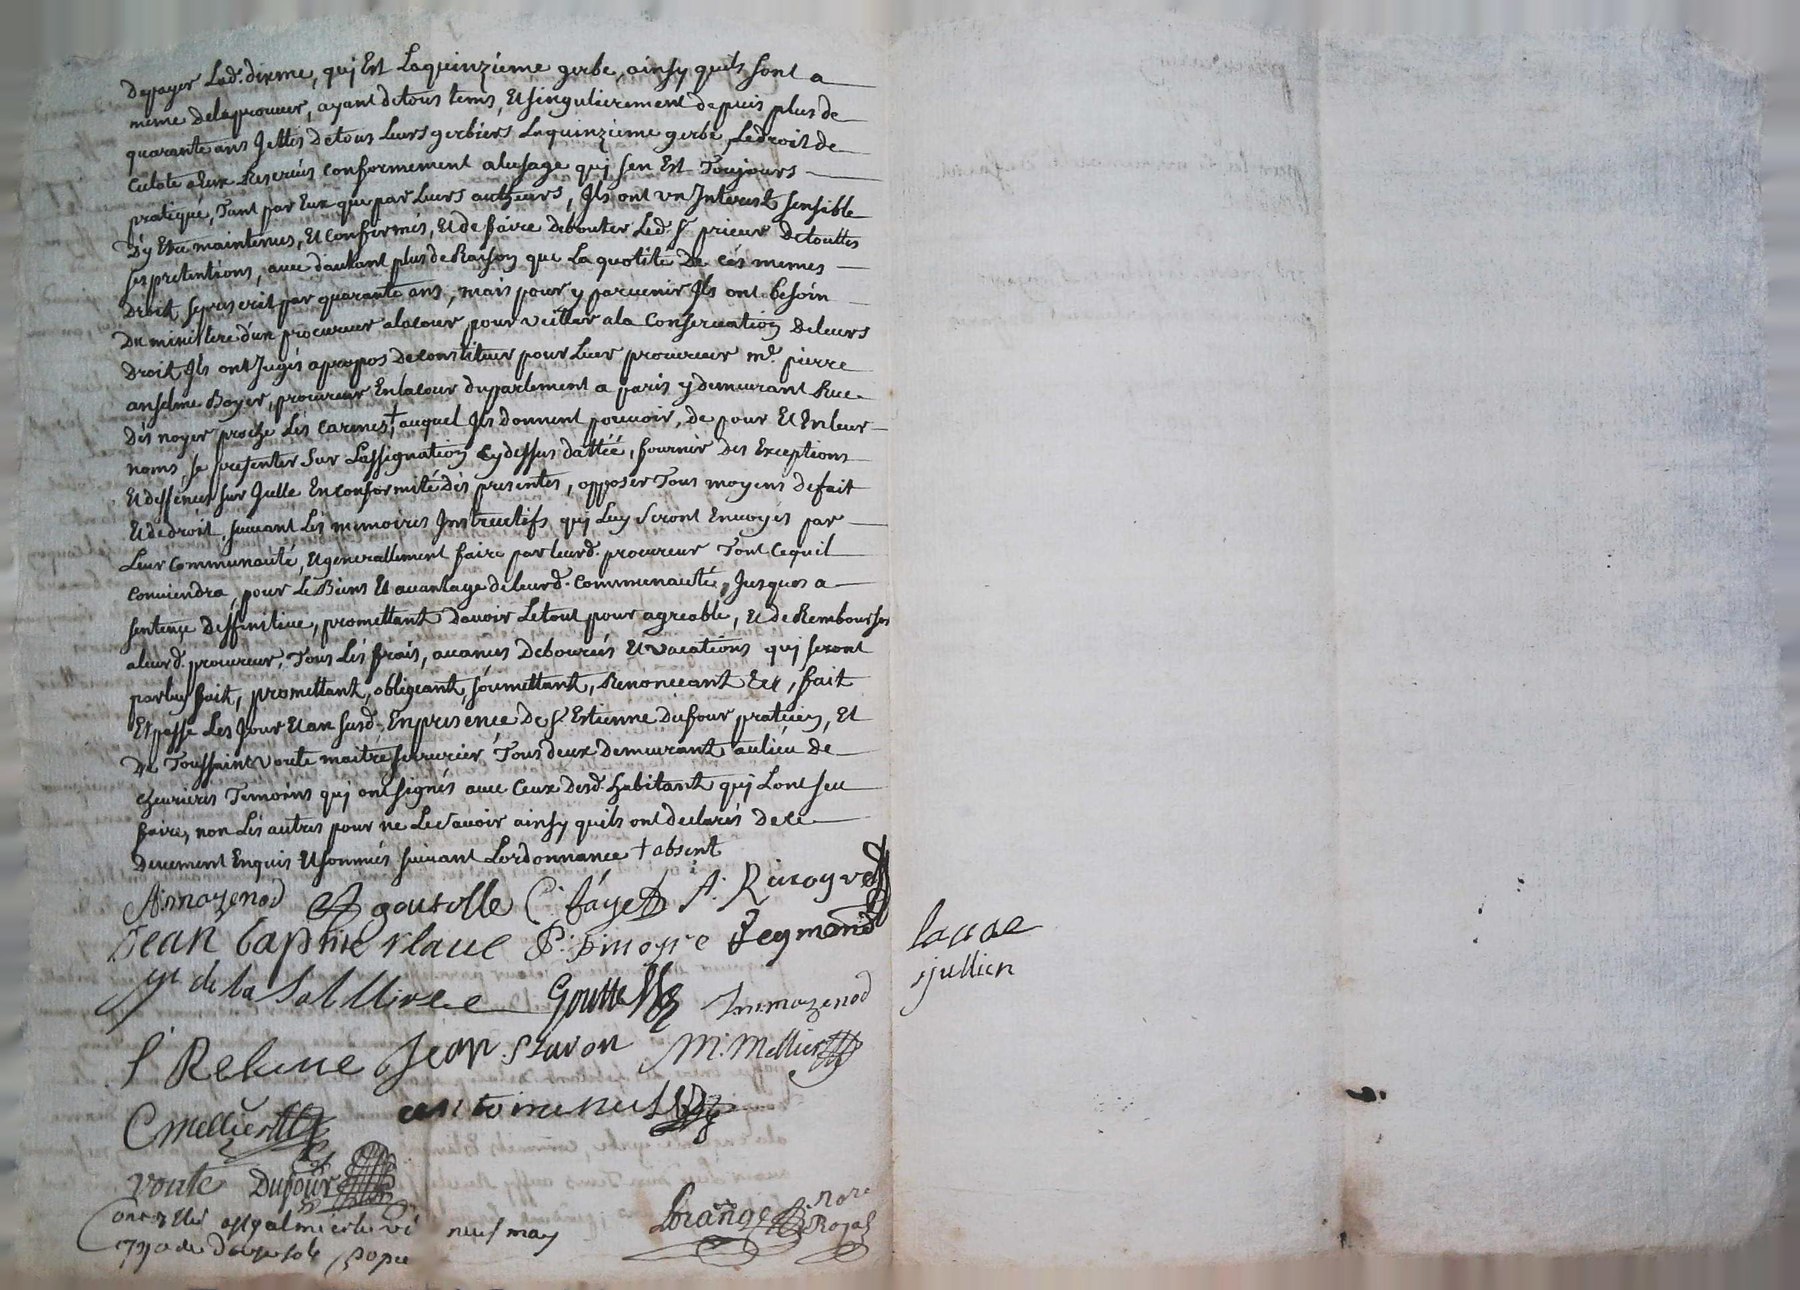 depayer Lad. dixme, quj Est Laquinzieme gerbe, ainsy quils sont a
meme delaprouver, ayant detous tems, Et singulierement depuis plus de
quarante ans Jettés detous Leurs gerbiers Laquinzieme gerbe, Ledroit de
Culote a Eux Reservés conformement alusage quj sen Est Toujours
pratiqué, Tant par Eux que par Leurs autheurs, Ils ont un Interest sensible
Dy Etre maintenus, Et confirmés, Et de faire debouter Led. Sr. prieur Detouttes
ses pretentions, avec dautant plus de Raison que La quotité De ces memes
Droit se prescrit par quarante ans, mais pour y parvenir Ils ont besoin
Du ministere dun procureur alacour pour veiller ala Conservation deleurs
Droit Ils ont Jugés apropos deconstituer pour Leur procureur me. pierre
anselme Boyer, procureur Enlacour duparlement a paris y demeurant Rue
des noyer proche Les carmes, † auquel Ils donnent pouvoir, de pour Et Enleur
noms, se presenter Sur Lassignation Cy dessus dattée, fournir Des Exceptions
Et deffences sur Jcelle Enconformité des presentes, opposer Tous moyens defait
Et de droit, suivant Les memoires Instructifs quj Luy Seront Envoyés par
Leur Communauté, Et generallement faire par leurd. procureur Tout Cequil
Conviendra, pour Le Biens Et avantage de leurd. Communauté, Jusques a
sentence Deffinitive, promettant davoir Letout pour agreable, Et de Rembourser
aleurd. procureur, Tous Les frais, avances Debourcés Et vacations quj seront
par luy fait, promettant, obligeant, soumettant, Renonceant Etc, fait
Et passé Les Jour Et an susd. En presence de Sr. Estienne Dufour praticien, Et
De Toussaint voute maitre serrurier, Tous deux Demeurant aulieu De
chevrieres Temoins quj ont signés avec Ceux desd. habitant quj Lont sceu
faire, non Les autres pour ne Le Savoir ainsy quils ont declarés de ce
Deuement Enquis Et sommés suivant Lordonnance † absent
A. mazenod goutelle C. fáye
Jean baptiste Reymond
Lacroe
jullien
yt de la Goutte mazenod
Jean M. Mellier
C mellier antoine
voute Dufour
neuf may
Lorange Nore
Royal